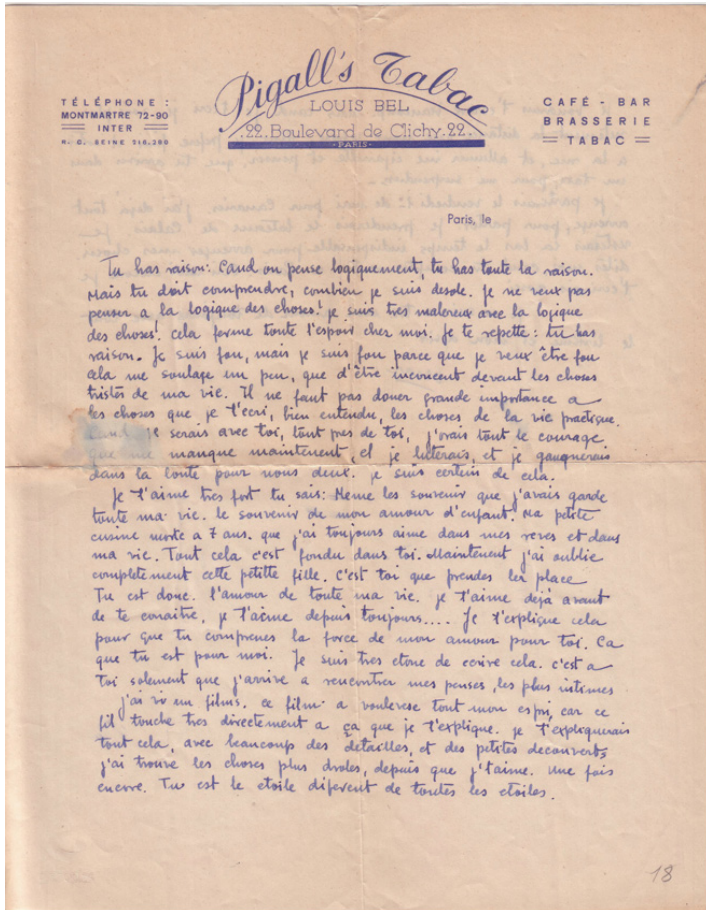 Pigall's Tabac
LOUIS BEL
.22. Boulevard de Clichy. 22.
-PARIS-
TÉLÉPHONE :
MONTMARTRE 72-90
INTER
R. C. SEINE 216.380
CAFÉ - BAR
BRASSERIE
TABAC
Paris, le
Tu has raison: Cand on pense logiquement, tu has toute la raison.
Mais tu doit comprendre, combien je suis desole. Je ne veux pas
penser a la logique des choses! je suis tres malereux avec la logique
des choses! cela ferme toute l'espoir cher moi. Je te repette: tu has
raison. Je suis fou, mais je suis fou parce que je veux être fou
cela me soulage un peu, que d'être inconcent devant les choses
tristes de ma vie. Il ne faut pas doner grande importance a
les choses que je t'ecri, bien entendu, les choses de la vie practique.
je serais avec toi, tout pres de toi, j'orais tout le courage
que me manque maintenent, et je luterais, et je gaugnerais
dans la lonte pour nous deux. je suis certein de cela.
Je t'aime tres fort tu sais: Meme les souvenir que j'avais garde
toute ma vie. le souvenir de mon amour d'enfant. Ma petite
cusine morte a 7 ans. que j'ai toujours aime dans mes reves et dans
ma vie. Tout cela c'est fondu dans toi. Maintenent j'ai oublie
completement cette petitte fille. C'est toi que prendes ler place
Tu est donc. l'amour de toute ma vie. je t'aime dejà avant
de te conaitre, je t'aime depuis toujours.... Je t'explique cela
pour que tu comprenes la force de mon amour pour toi. Ca
que tu est pour moi. Je suis tres etone de ecrire cela. c'est a
toi solement que j'arrive a rencontrer mes penses, les plus intimes
j'ai vi un films. ce film a voulerese tout mon espri, car ce
fil touche tres directement a ça que je t'explique. je t'expliquerais
tout cela, avec beaucoup des detailles, et des petites decouverts
j'ai trouve les choses plus droles, depuis que j't'aime. Une fois
encore. Tu est le etoile diferent de toutes les etoiles.
18